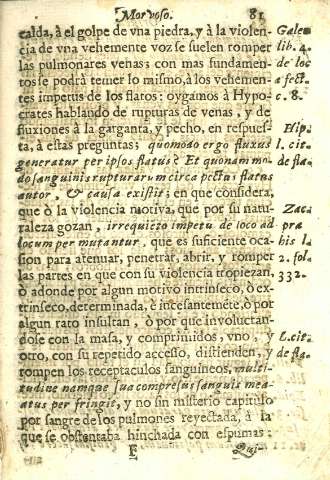 Morvoso. 81
caìda, à el golpe de vna piedra, y à la violen-
cia de vna vehemente voz se suelen romper
las pulmonares venas; con mas fundamen-
to se podrà temer lo mismo, à los vehemen-
tes impetus de los flatos: oygamos à Hypo-
crates hablando de rupturas de venas, y de
fluxiones à la garganta, y pecho, en respues-
ta, à estas preguntas; quomodo ergo fluxus
generatur per ipsos flatus? Et quonam mo-
do sanguinis rupturarum circa pectus flatus
autor, & causa existit; en que considera,
que ò la violencia motiva, que por su natu-
raleza gozan, irrequieto impetu de loco ad
locum permutantur, que es suficiente oca-
sion para atenuar, penetrar, abrir, y romper
las partes en que con su violencia tropiezan,
ò adonde por algun motivo intrinseco, ò ex-
trinseco, determinada, è incesantemẽte, ò por
algun rato insultan, ò por que involuctan-
dose con la masa, y comprimidos, vno, y
otro, con su repetido accesso, distienden, y
rompen los receptaculos sanguineos, multi-
tudine namque sua compresus sanguis mea-
atus per fringit, y no sin misterio capitulò
por sangre de los pulmones reyectada, à la
que se obstentaba hinchada con espumas:
F
Qui-
Galen
lib. 4.
de loc
affect.
c. 8.
Hip.
l. cit.
de fla.
Zac
pra
his l.
2. fol.
332.
L. cit.
de fla.